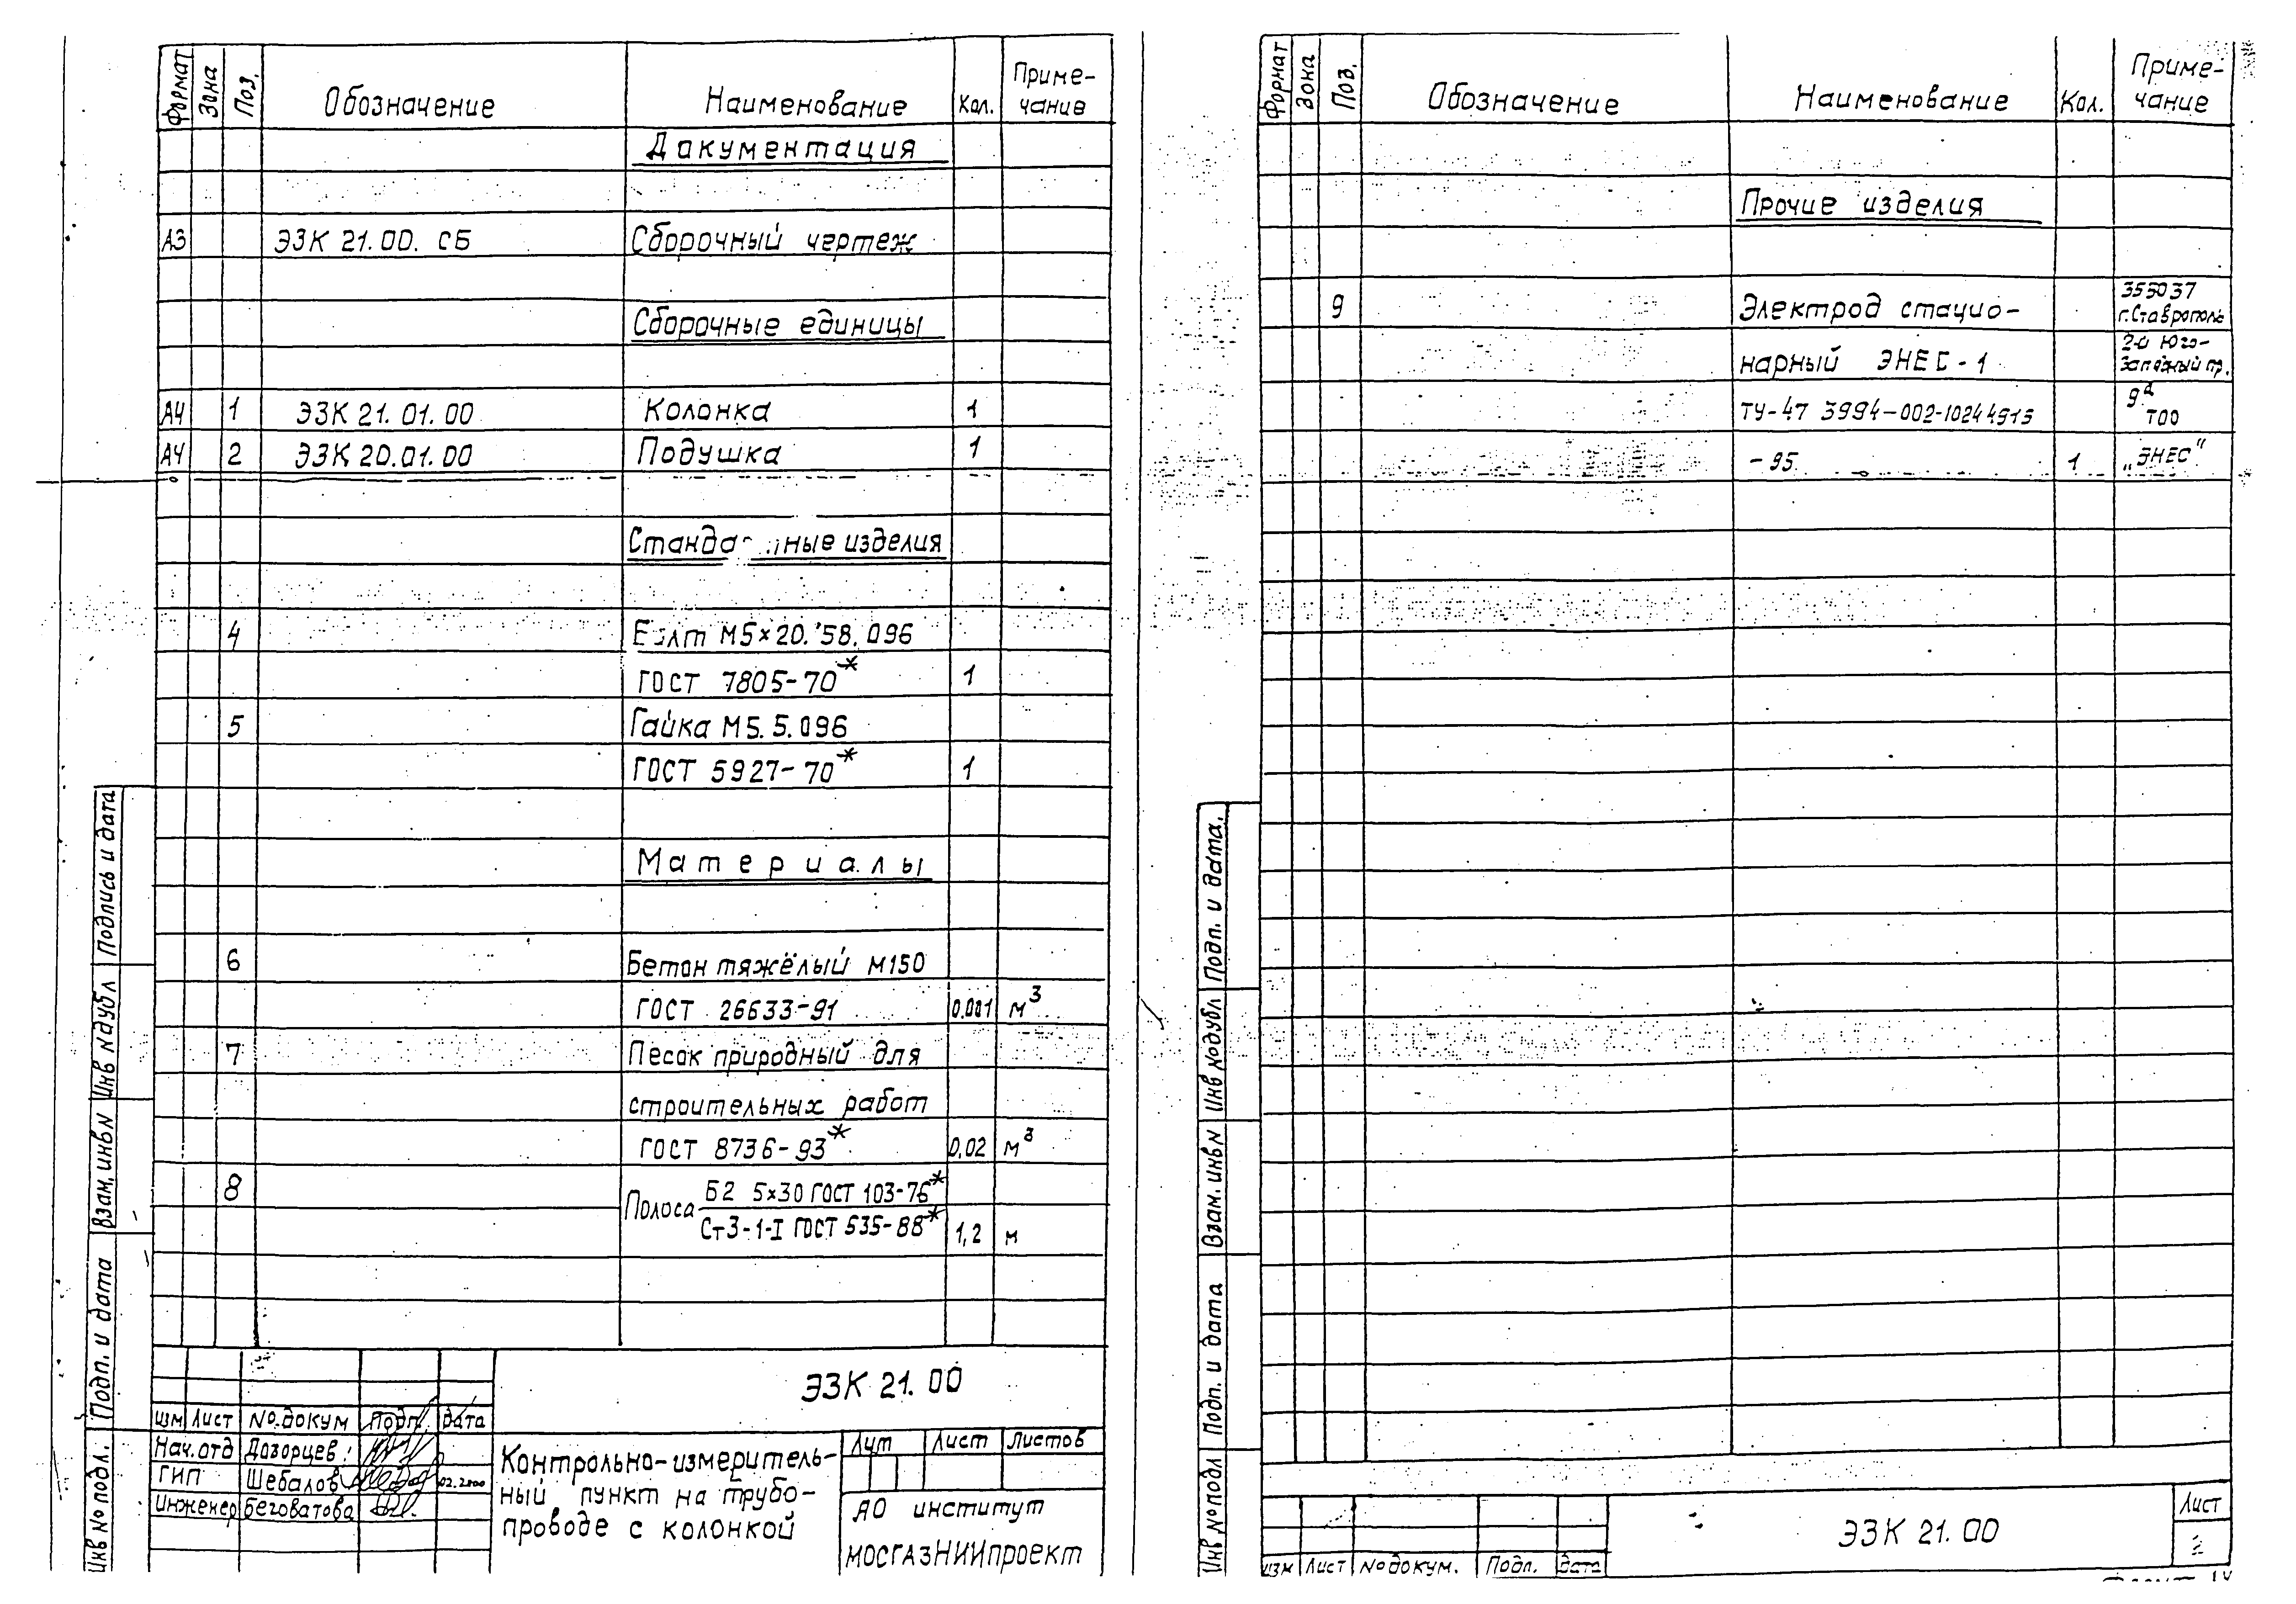 Формат Зона Поз. Обозначение Наименование Кол. Приме-
чание
Документация
А3 ЭЗК 21.00. СБ Сборочный чертеж
Сборочные единицы
А4 1 ЭЗК 21.01.00 Колонка 1
А4 2 ЭЗК 20.01.00 Подушка 1
изделия
4 М5×20. 58. 096
ГОСТ 7805-70* 1
5 Гайка М5.5.096
ГОСТ 5927-70* 1
Материалы
6 Бетон тяжёлый М150
ГОСТ 26633-91 0,001 м³
7 Песок природный для
строительных работ
ГОСТ 8736-93* 0,02 м³
8 Полоса Б2 5×30 ГОСТ 103-76*
Ст3-1-I ГОСТ 535-88* 1,2 м
Подпись и дата
Инв № дубл
Взам. инв №
Подп. и дата
Инв № подл.
ЭЗК 21.00
Изм Лист № докум Подп. Дата
Нач.отд Дозорцев
ГИП Шебалов 02.2000
Инженер Беговатова
Контрольно-измеритель-
ный пункт на трубо-
проводе с колонкой
Лит Лист Листов
АО институт
МОСГАЗНИИпроект
Формат Зона Поз. Обозначение Наименование Кол. Приме-
чание
Прочие изделия
9 Электрод стацио- 355037
г.Ставрополь
нарный ЭНЕС-1 2-й Юго-
Западный пр.
ТУ-47 3994-002-10244915 9а
ТОО
-95 1 „ЭНЕС"
Подп. и дата.
Инв № дубл
Взам. инв №
Подп. и дата
Инв № подл
ЭЗК 21.00
Лист
2
Изм Лист № докум. Подп. Дата